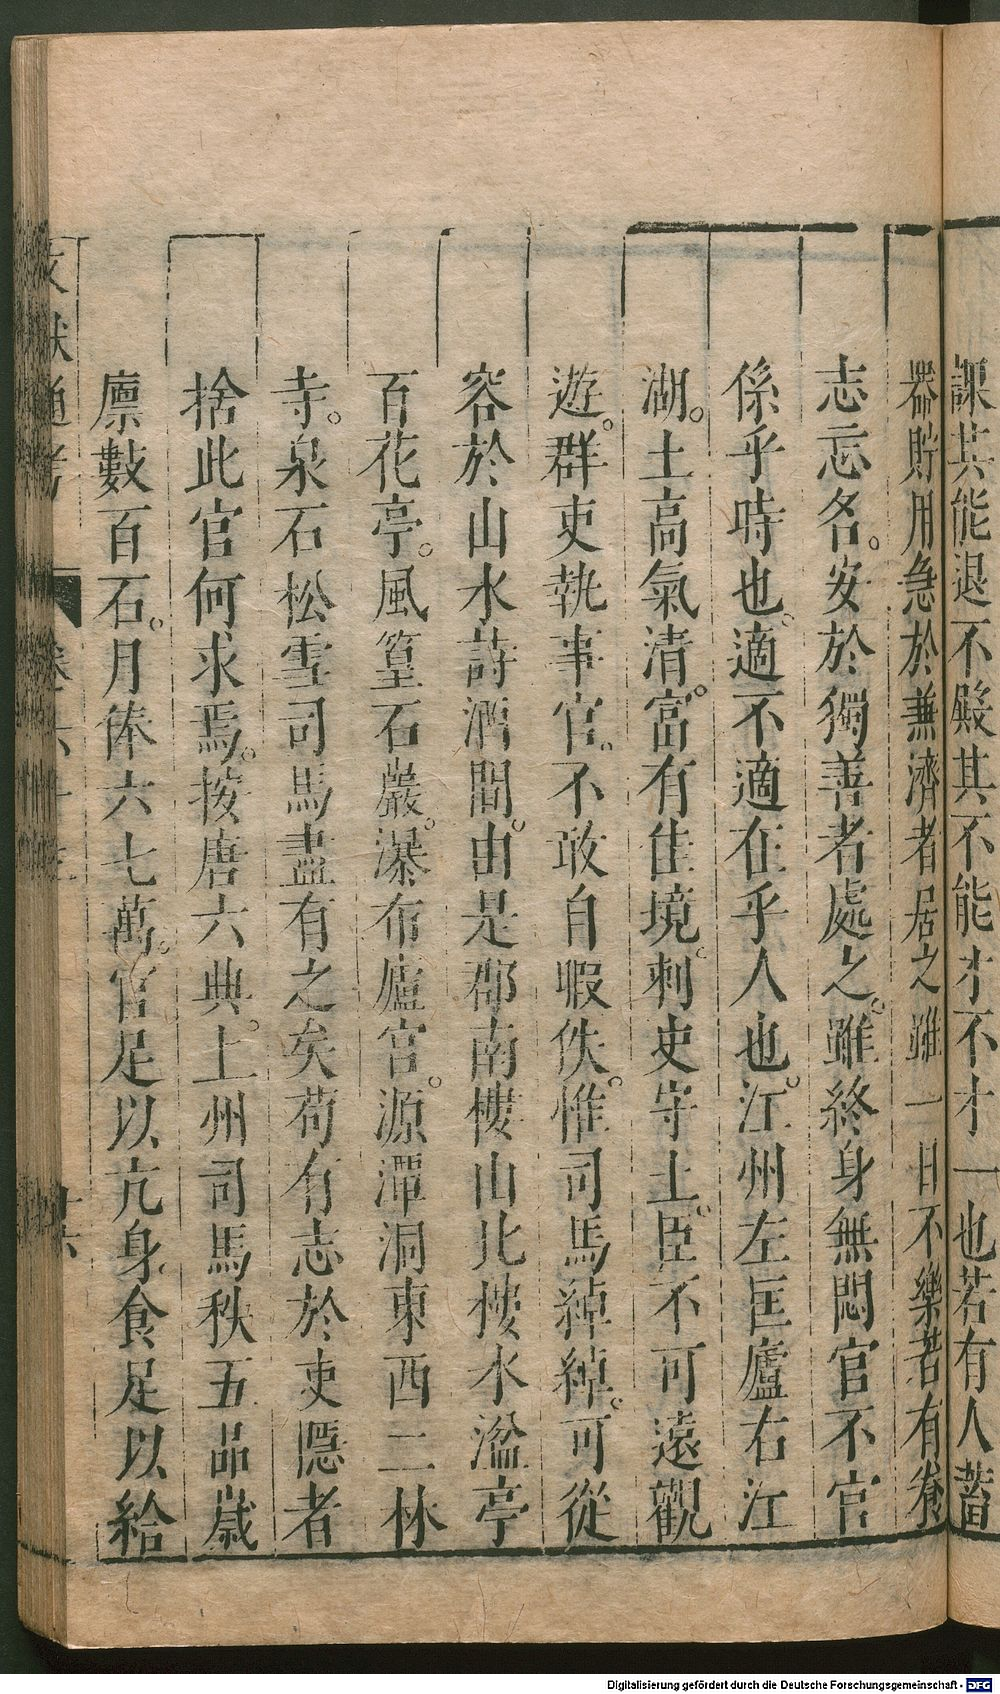 課其能退不殿其不能才不才一也若有人蓄
器貯用急於兼濟者居之雖一日不樂若有養
志忘名。安於獨善者處之。雖終身無悶官不官
係乎時也。適不適在乎人也。江州左匡廬右江
湖。土高氣清。富有佳境。刺史守土。臣不可遠觀
遊。群吏執事官。不敢自暇佚。惟司馬綽綽。可從
容於山水詩酒間。由是郡南樓山北樓水湓亭
百花亭。風篁石巖。瀑布廬宮。源潭洞東西二林
寺。泉石松雪司馬盡有之矣苟有志於吏隱者
捨此官何求焉。按唐六典。上州司馬秩五品歲
廩數百石。月俸六七萬。官足以亢身食足以給
文獻通考
Digitalisierung gefördert durch die Deutsche Forschungsgemeinschaft - DFG